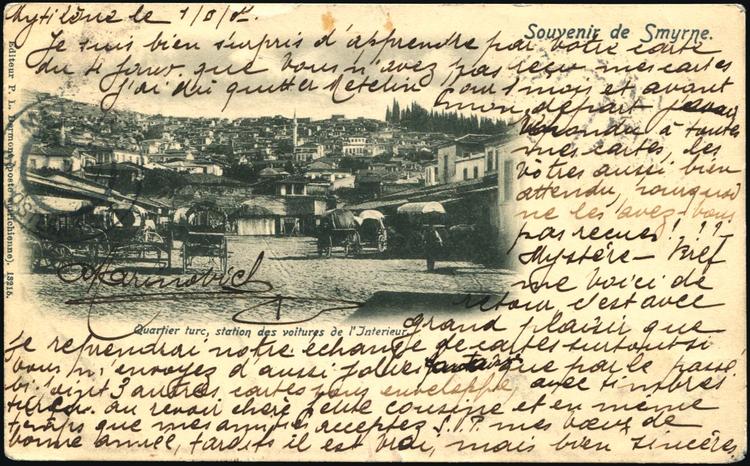 Mytilène le
Souvenir de Smyrne.
Je suis bien surpris d'apprendre par votre carte
du 4 Janv. que vous n'avez pas reçu mes cartes
J'ai dû quitter Metelin pour 1 mois et avant
mon départ j'avais
répondu à toutes
vos cartes, les
vôtres aussi bien
attendu, pourquoi
ne les avez-vous
pas reçues! ??
Mystère - Bref
me voici de
retour, c'est avec
grand plaisir que
Editeur P. L. (poste autrichienne). 13215.
Quartier turc, station des voitures de l'Interieur.
je reprendrai notre échange de cartes surtout si
vous m'envoyez d'aussi jolies que par le passé
ci joint 3 autres cartes sous enveloppe, avec timbres
turcs. au revoir chère petite cousine et en même
temps que mes amitiés, acceptez S.V.P. mes vœux de
bonne année, tardifs il est vrai, mais bien sincères,